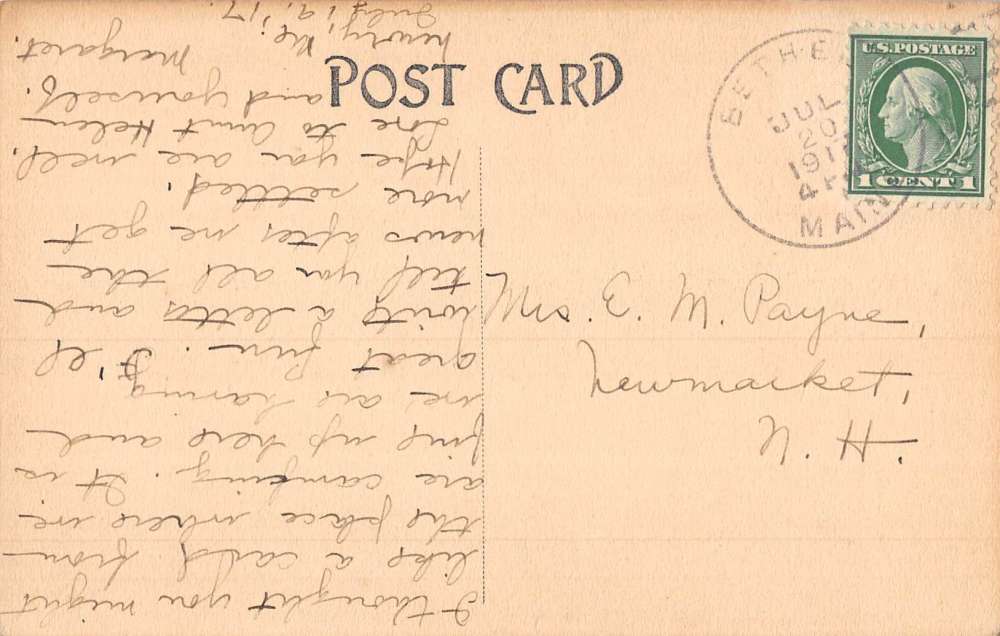 POST CARD
U.S. POSTAGE
1 CENT 1
BETHEL
JUL
20
4 PM
MAINE
Mrs. E. M. Payne,
Newmarket,
N. H.
Newry, Me.
July 19, '17.
I thought you might
like a card from
the place where we
are camping. It is
fine up here and
we are having
great fun. I'll
write a letter and
tell you all the
news after we get
more settled.
Hope you are well.
Love to Aunt Helen
and yourself.
Margaret.